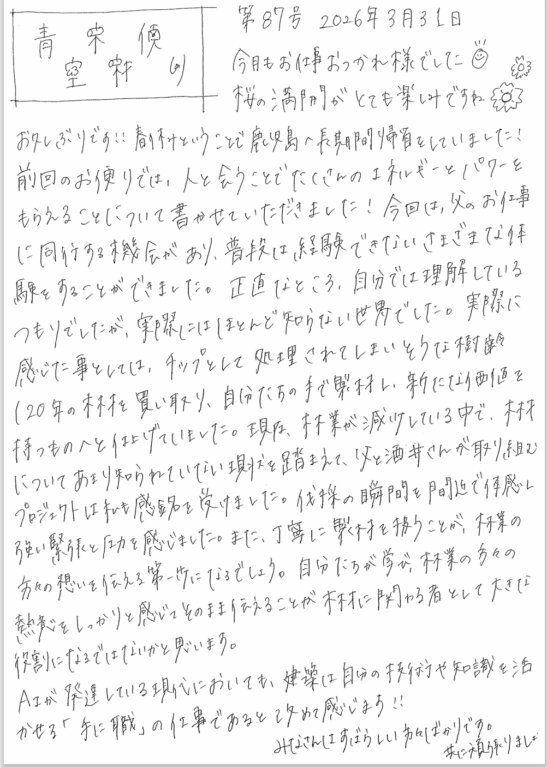 青栄偵
空材
第87号 2026年3月31日
今月もお仕事おつかれ様でした
桜の満開がとても楽しみですね
お久しぶりです!! 春休みということで鹿児島へ長期間帰省をしていました!
前回のお便りでは、人と会うことでたくさんのエネルギーとパワーを
もらえることについて書かせていただきました! 今回は、父のお仕事
に同行する機会があり、普段は経験できないさまざまな体
験をすることができました。正直なところ、自分では理解している
つもりでしたが、実際にはほとんど知らない世界でした。実際に
感じた事としては、チップとして処理されてしまいそうな樹齢
120年の木材を買い取り、自分たちの手で製材し、新たな価値を
持つものへと仕上げていました。現在、林業が減少している中で、木材
についてあまり知られていない現状を踏まえて、父と酒井さんが取り組む
プロジェクトは私も感銘を受けました。伐採の瞬間を間近で体感し
強い緊張と圧力を感じました。また、丁寧に製材を扱うことが、林業の
方々の想いを伝える第一歩になるでしょう。自分たちが学び、林業の方々の
熱意をしっかりと感じてそのまま伝えることが木材に関わる者として大きな
役割になるではないかと思います。
AIが発達している現代においても、建築は自分の技術や知識を活
かせる「手に職」の仕事であると改めて感じます!!
みなさんはすばらしい方々ばかりです。
共に頑張りましょ